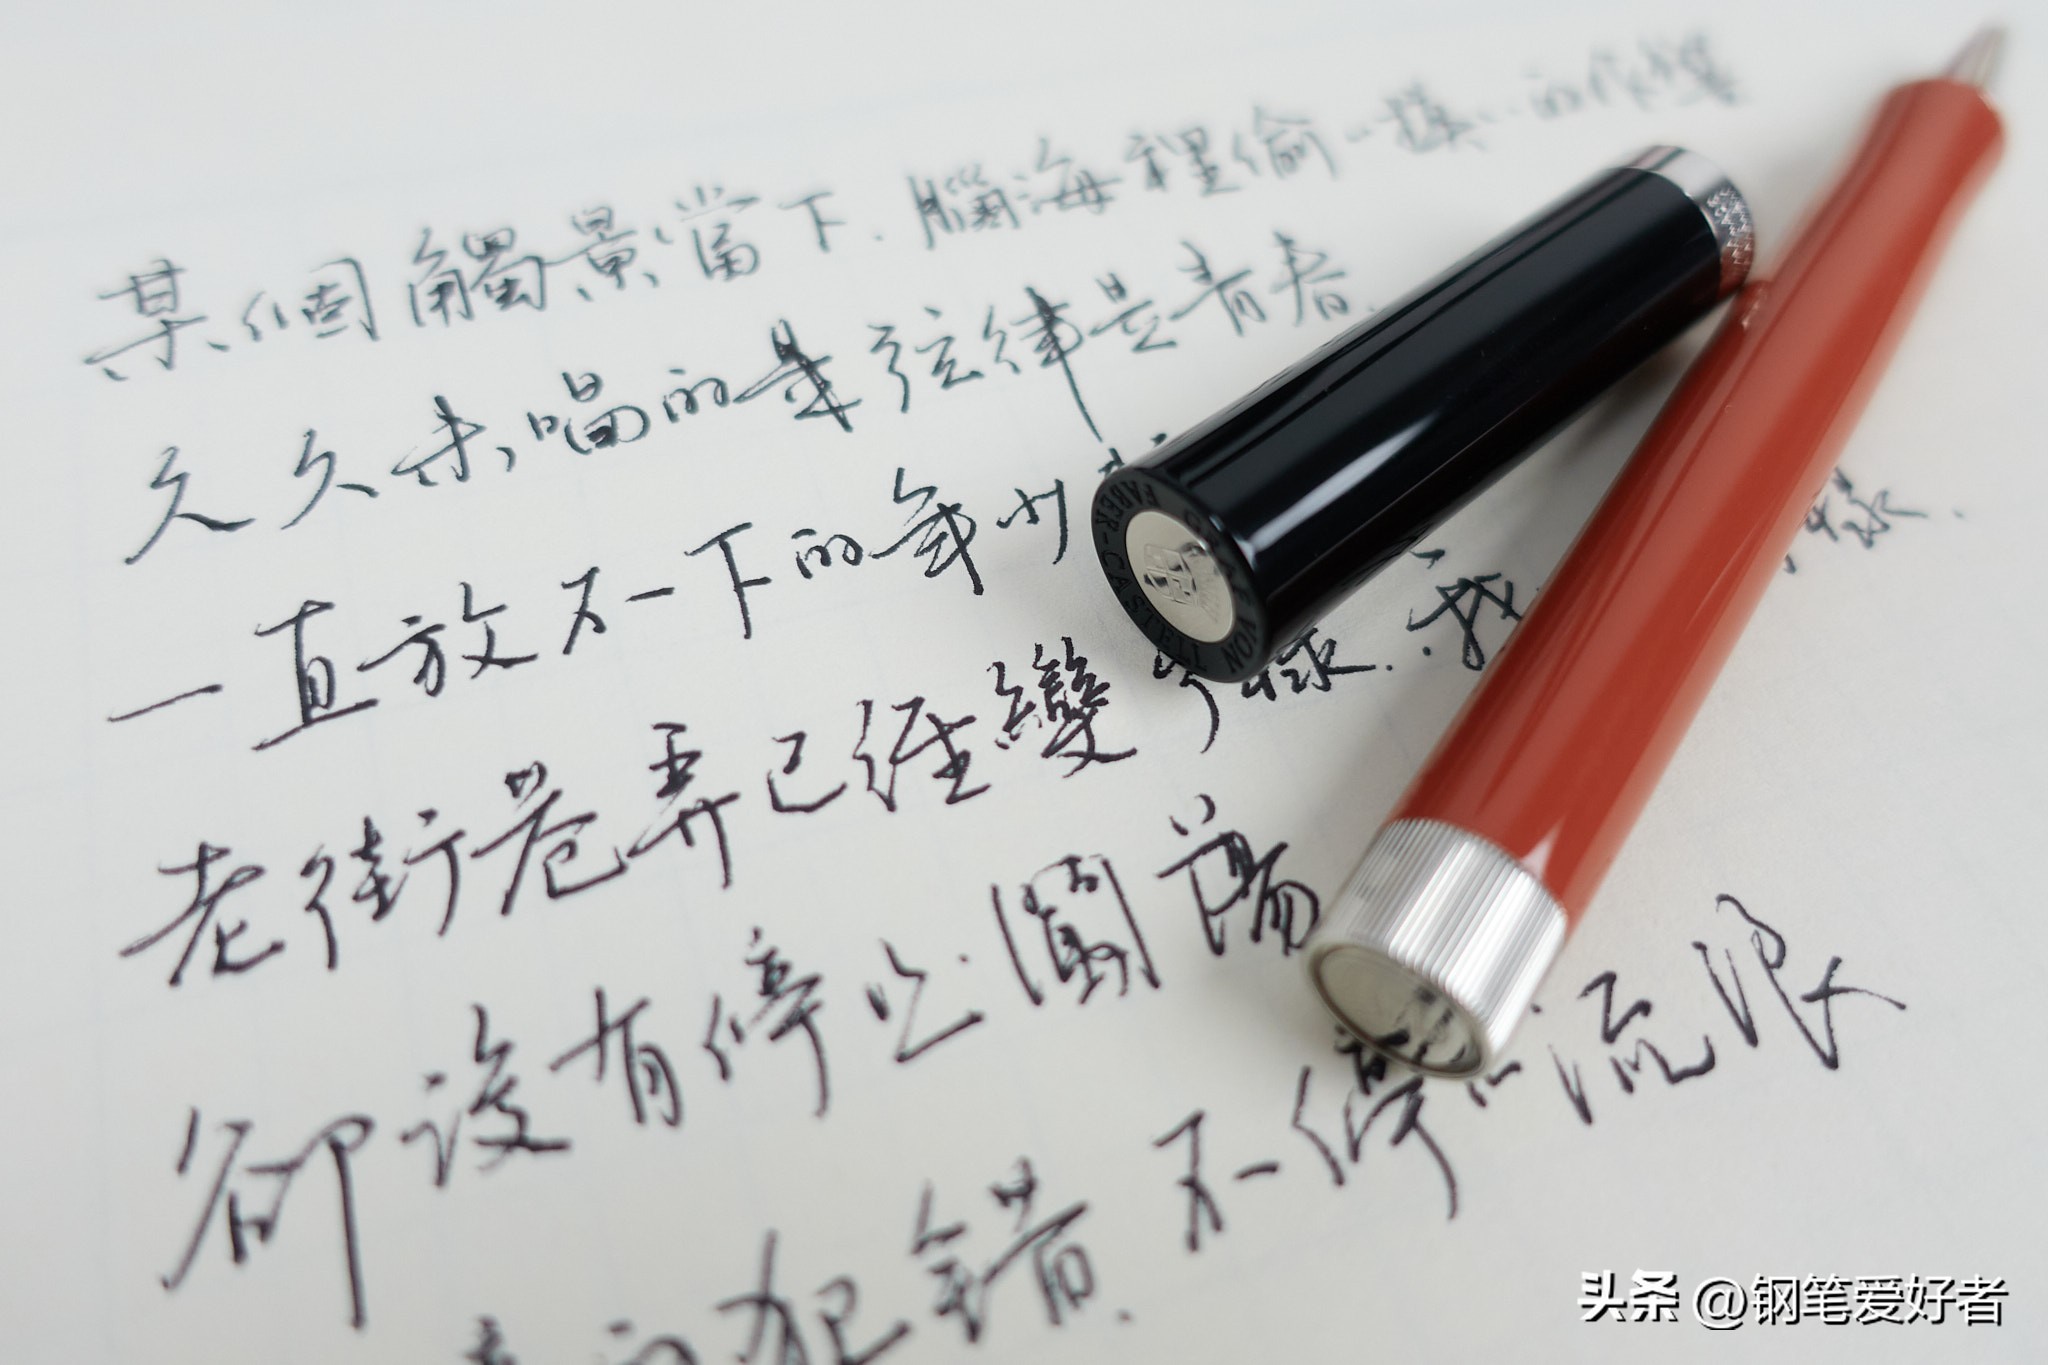 某個觸景當下.腦海裡偷
久久未唱的某弦律是青春.
一直放不下的年少
老街巷弄已經變了樣.我 樣.
卻沒有停止闖蕩
不停止流浪
犯錯.
GRAF VON FABER-CASTELL
头条 @钢笔爱好者